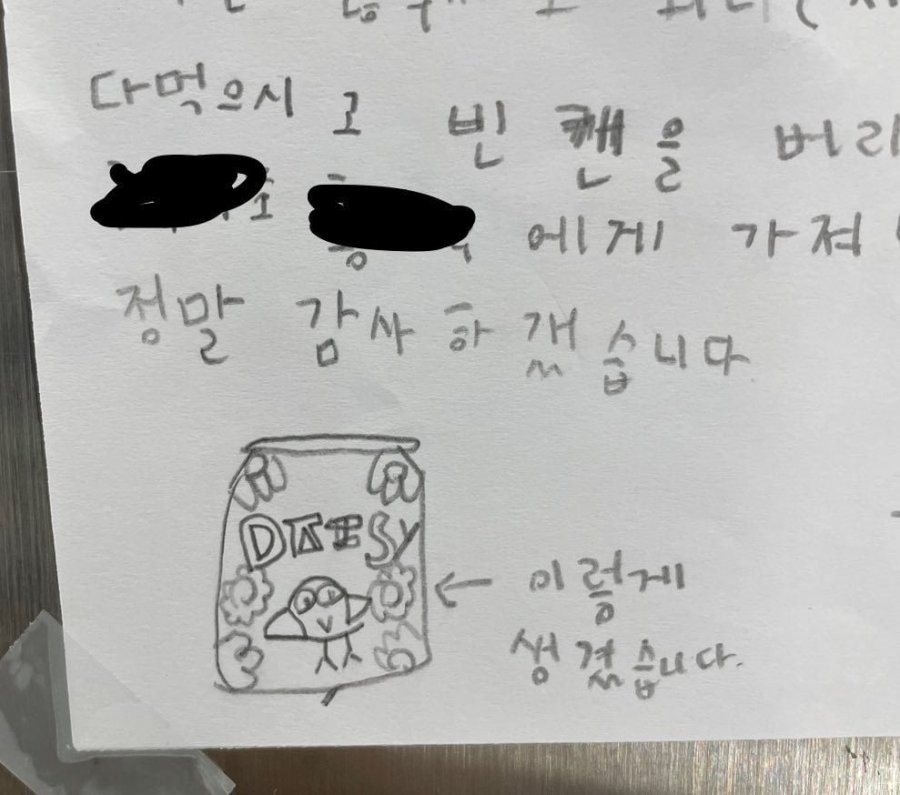 다먹으시고 빈 캔을 버리
에게 가져
정말 감사하갰습니다
DAISY
← 이렇게
생겼습니다.